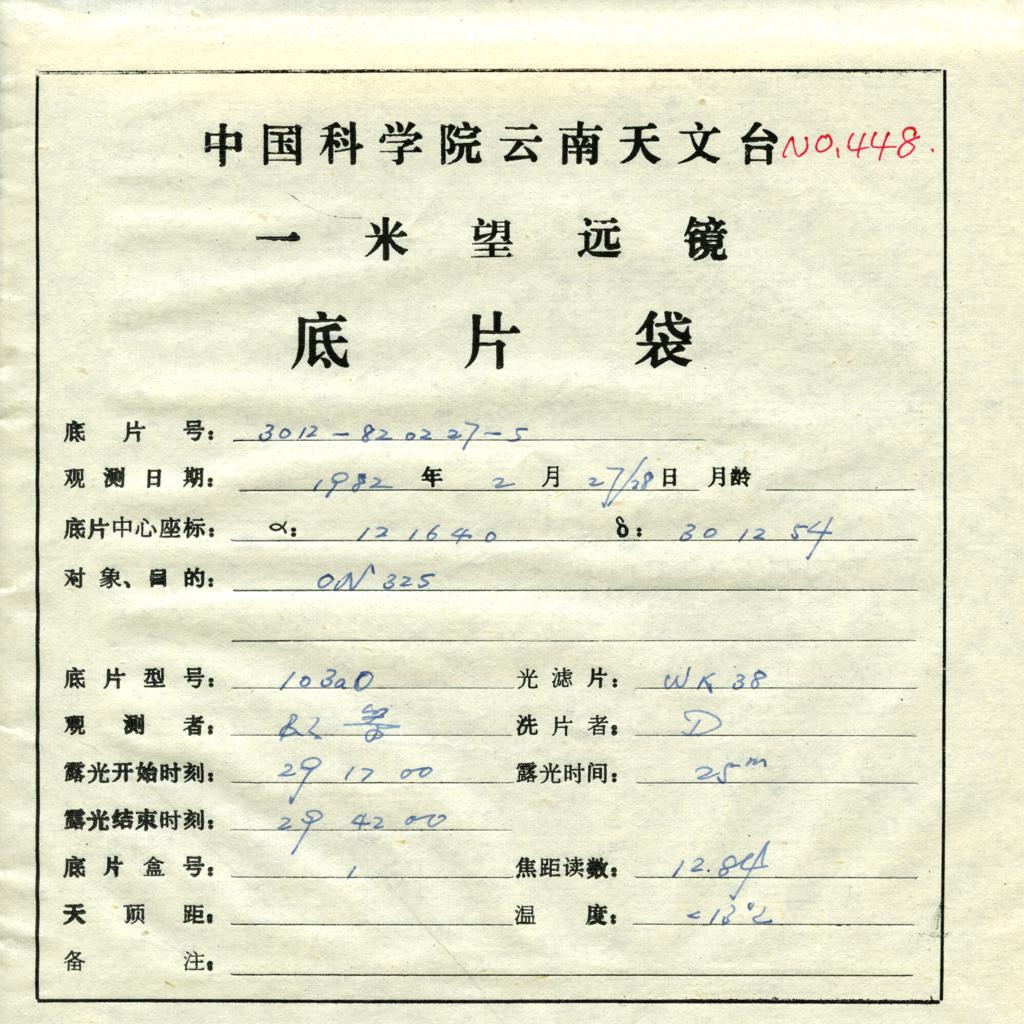 中国科学院云南天文台 NO.448.
一米望远镜
底片袋
底片号: 3012-820227-5
观测日期: 1982 年 2 月 27/28 日 月龄
底片中心座标: α: 12 16 40 δ: 30 12 54
对象、目的: ON 325
底片型号: 103aO 光滤片: WK 38
观测者: 洗片者: D
露光开始时刻: 29 17 00 露光时间: 25m
露光结束时刻: 29 42 00
底片盒号: 1 焦距读数: 12.84
天顶距: 温度: <13°C
备注: